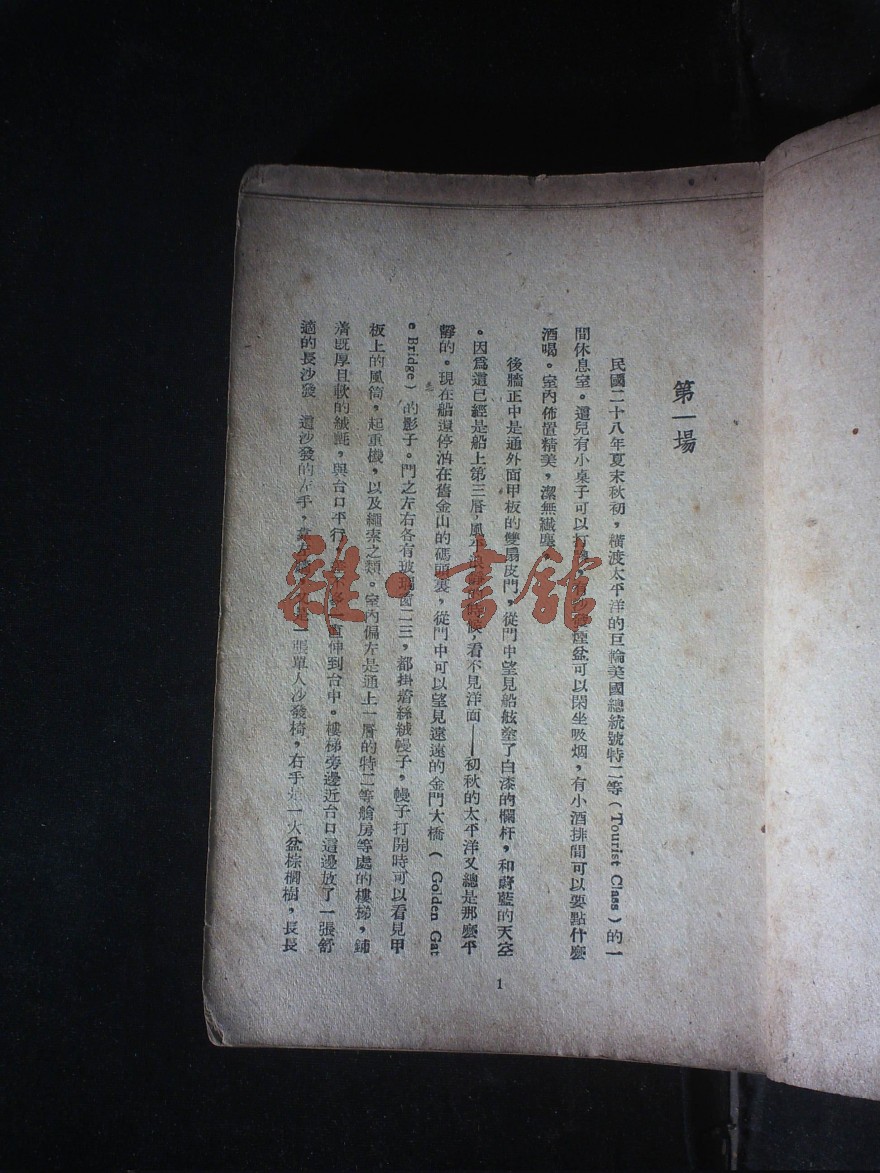 第一場
民國二十八年夏末秋初，橫渡太平洋的巨輪美國總統號特二等（Tourist Class）的一
間休息室。這兒有小桌子可以打，有沙發煙盆可以閑坐吸烟，有小酒排間可以要點什麼
酒喝。室內佈置精美，潔無纖塵。
後牆正中是通外面甲板的雙扇皮門，從門中望見船舷塗了白漆的欄杆，和蔚藍的天空
。因爲這已經是船上第三層，風平時候，看不見洋面——初秋的太平洋又總是那麼平
靜的。現在船還停泊在舊金山的碼頭裏，從門中可以望見遠遠的金門大橋（Golden Gat
e Bridge）的影子。門之左右各有玻璃窗二三，都掛着絲絨幔子，幔子打開時可以看見甲
板上的風筒，起重機，以及繩索之類。室內偏左是通上一層的特二等艙房等處的樓梯，鋪
着既厚且軟的絨氈，與台口平行，一直伸到台中。樓梯旁邊近台口這邊放了一張舒
適的長沙發 這沙發的左手，一張單人沙發椅，右手是一大盆棕櫚樹，長長
1
雜·書館